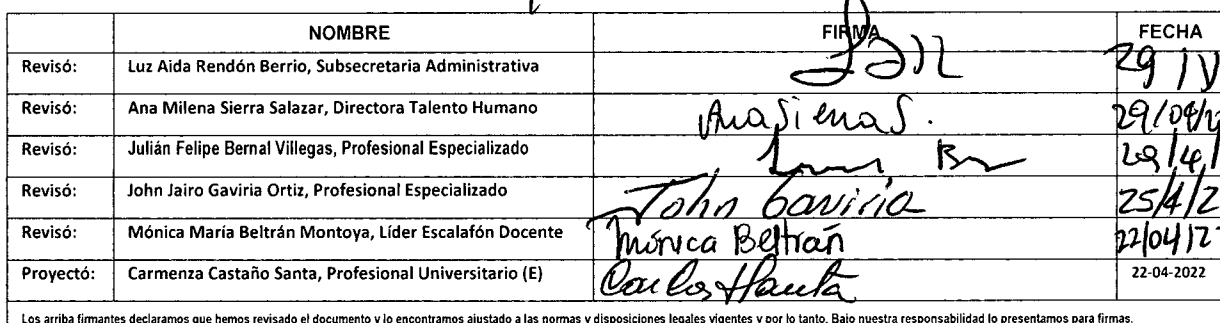 NOMBRE FIRMA FECHA
Revisó: Luz Aida Rendón Berrio, Subsecretaria Administrativa 29 IV
Revisó: Ana Milena Sierra Salazar, Directora Talento Humano AnaSierraS. 29/04/2
Revisó: Julián Felipe Bernal Villegas, Profesional Especializado 29/4/
Revisó: John Jairo Gaviria Ortiz, Profesional Especializado John Gaviria 25/4/2
Revisó: Mónica María Beltrán Montoya, Líder Escalafón Docente Mónica Beltrán 22/04/2
Proyectó: Carmenza Castaño Santa, Profesional Universitario (E) 22-04-2022
Los arriba firmantes declaramos que hemos revisado el documento y lo encontramos ajustado a las normas y disposiciones legales vigentes y por lo tanto, Bajo nuestra responsabilidad lo presentamos para firmas.